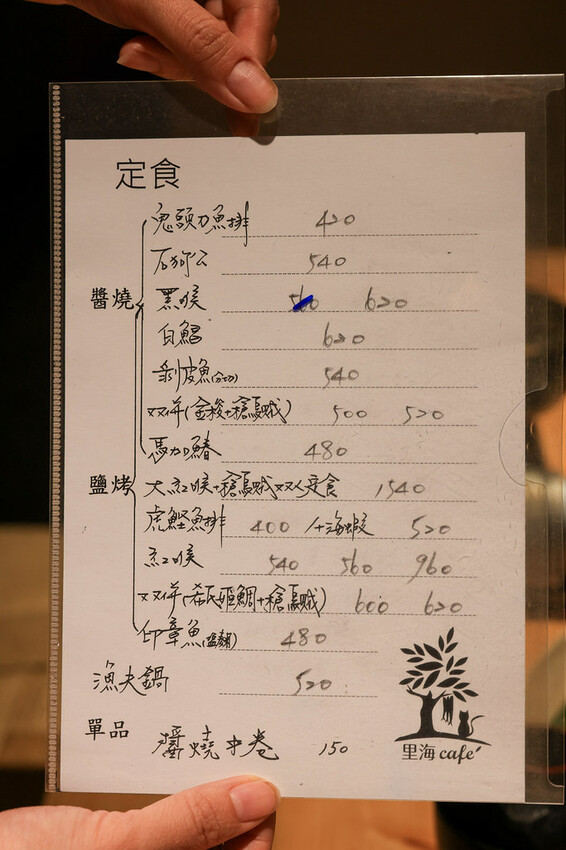 定食
鬼頭刀魚排 420
石狗公 540
醬燒
黑喉 560 620
白鯧 620
剝皮魚(分切) 540
双併(金梭+槍烏賊) 500 520
馬加鰆 480
鹽烤
大紅喉+槍烏賊双人定食 1540
虎鰹魚排 400 /+海蝦 520
紅喉 540 560 960
双併(希氏姬鯛+槍烏賊) 600 620
印章魚 480
漁夫鍋 520
單品
醬燒中卷 150
里海 café